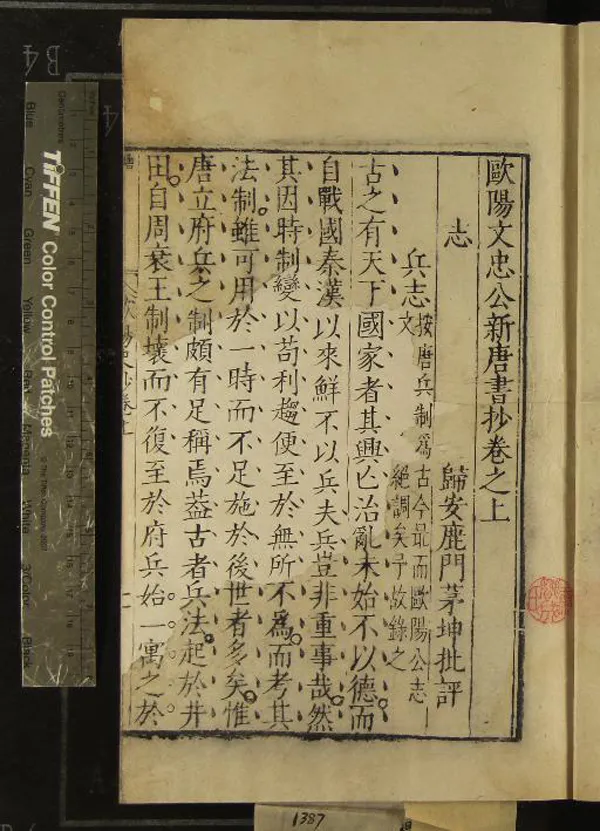 歐陽文忠公新唐書抄卷之上
歸安鹿門茅坤批評
志
兵志
按唐兵制爲古今最而歐陽公志
文絕調矣予故錄之
古之有天下國家者其興亡治亂未始不以德而
自戰國秦漢以來鮮不以兵夫兵豈非重事哉然
其因時制變以苟利趨便至於無所不爲而考其
法制雖可用於一時而不足施於後世者多矣惟
唐立府兵之制頗有足稱焉葢古者兵法起於井
田自周衰王制壞而不復至於府兵始一寓之於
TIFFEN Color Control Patches
Blue
Cyan
Green
Yellow
Red
Magenta
White
3/Color
Black
Centimetres
B4
1387